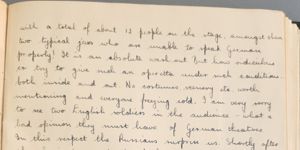 with a total of about 12 people on the stage, amongst them
two typical jews who are unable to speak German
properly! It is an absolute wash out. But how ridiculous
to try to give such an operetta under such conditions
both inside and out. No costumes scenery etc. worth
mentioning and everyone freezing cold. I am very sorry
to see two English soldiers in the audience - what a
bad opinion they must have of German theatres
In this respect the Russians surprise us. Shortly after